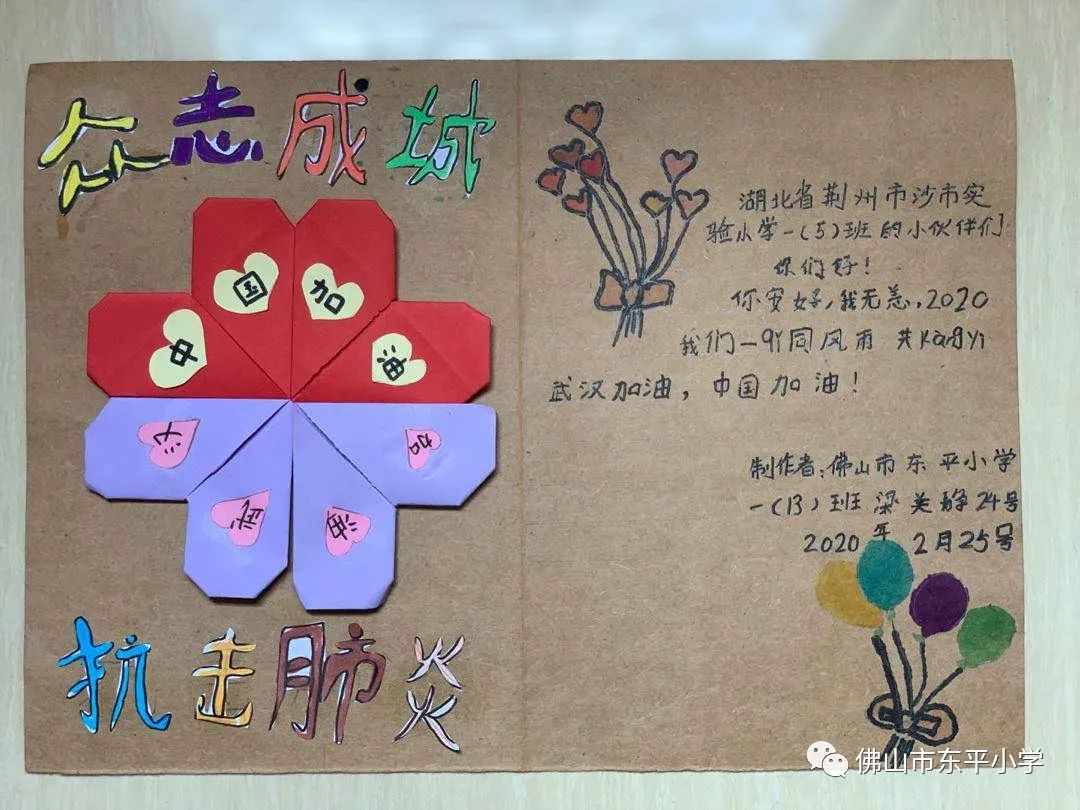 众志成城
中国加油
武汉加油
抗击肺炎
湖北省荆州市沙市实
验小学一(5)班的小伙伴们
你们好!
你安好,我无恙,2020
我们一qi同风雨 共kàngyi
武汉加油,中国加油!
制作者:佛山市东平小学
一(13)班 梁美静24号
2020年2月25号
佛山市东平小学